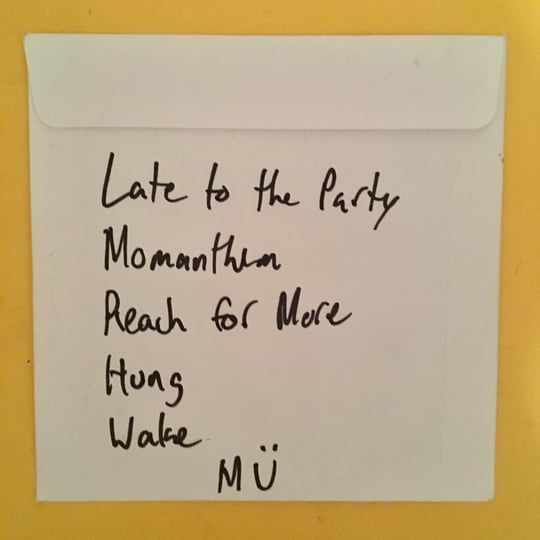 Late to the Party
Momanthem
Reach for More
Hung
Wake
MÜ